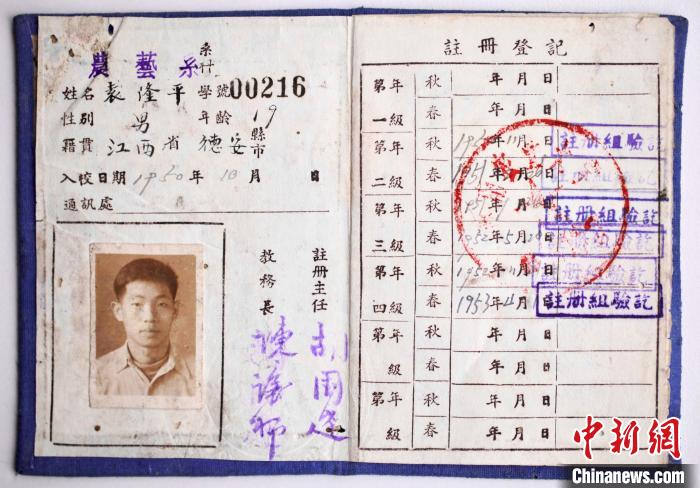 農藝系
系科
姓名 袁隆平 學號 00216
性別 男 年齡 19
籍貫 江西省 德安 縣市
入校日期 1950年10月 日
通訊處
註冊主任
教務長
註冊登記
第一年級 秋 年 月 日
春 年 月 日
第二年級 秋 年11月 日 註册組驗訖
春 1951年 月 日 註册組驗訖
第三年級 秋 年 月 日 註册組驗訖
春 1952年5月 日 註册組驗訖
第四年級 秋 1952年 月 日 註册組驗訖
春 1953年4月 日 註册組驗訖
第 年級 秋 年 月 日
春 年 月 日
第 年級 秋 年 月 日
春 年 月 日
中新網
Chinanews.com